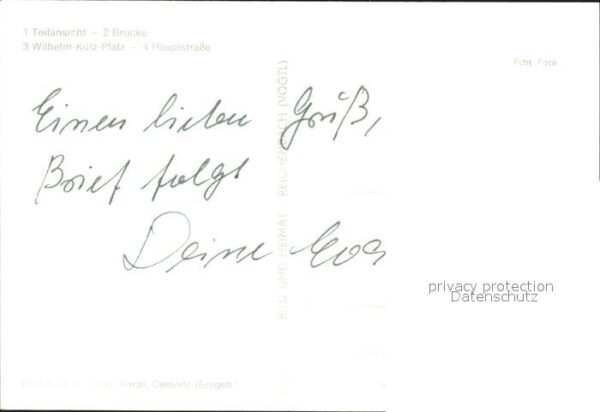 1 Teilansicht – 2 Brücke
3 Wilhelm-Külz-Platz – 4 Hauptstraße
Echt Foto
Einen lieben Gruß,
Brief folgt
Deine
BILD UND HEIMAT REICHENBACH (VOGTL)
privacy protection
Datenschutz
Karpf, Oelsnitz (Erzgeb.)